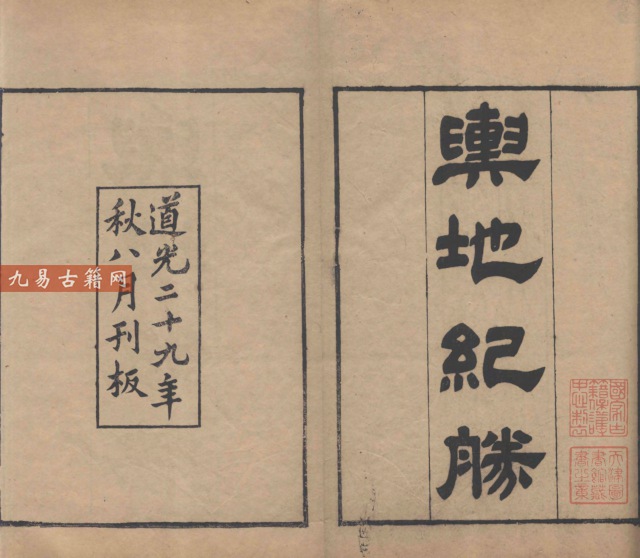 輿地紀勝
道光二十九年
秋八月刊板
九易古籍网